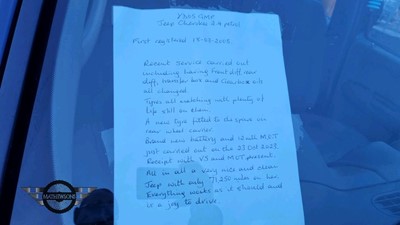 Jeep Cherokee 2.4 petrol
First registered 15-05-2003
Recent service carried out
including having front diff, rear
diff, transfer box and Gearbox oils
all changed
Tyres all matching with plenty of
life still on them
A new tyre fitted to the spare on
rear wheel carrier
Brand new battery and 12 mth M.O.T
just carried out on the 27 Oct 2023
Receipt with V5 and M.O.T present
All in all a very nice and clean
Jeep with only 71,250 miles on her
Everything works as it should and
is a joy to drive
MATHEWSONS